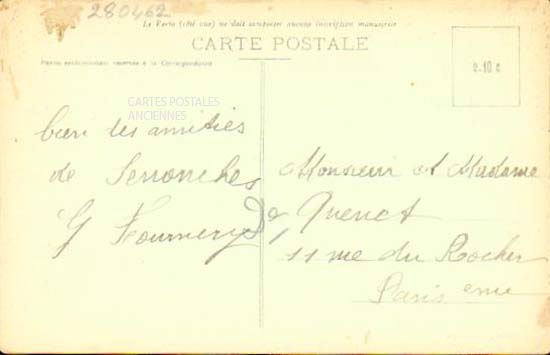 280462
Le Verso (côté vue) ne doit comporter aucune inscription manuscrite
CARTE POSTALE
Partie exclusivement réservée à la Correspondance
0.10 c
CARTES POSTALES
ANCIENNES
bien des amitiés
de Senonches
G Fournery
Monsieur et Madame
de Quenet
11 rue du Rocher
Paris eme